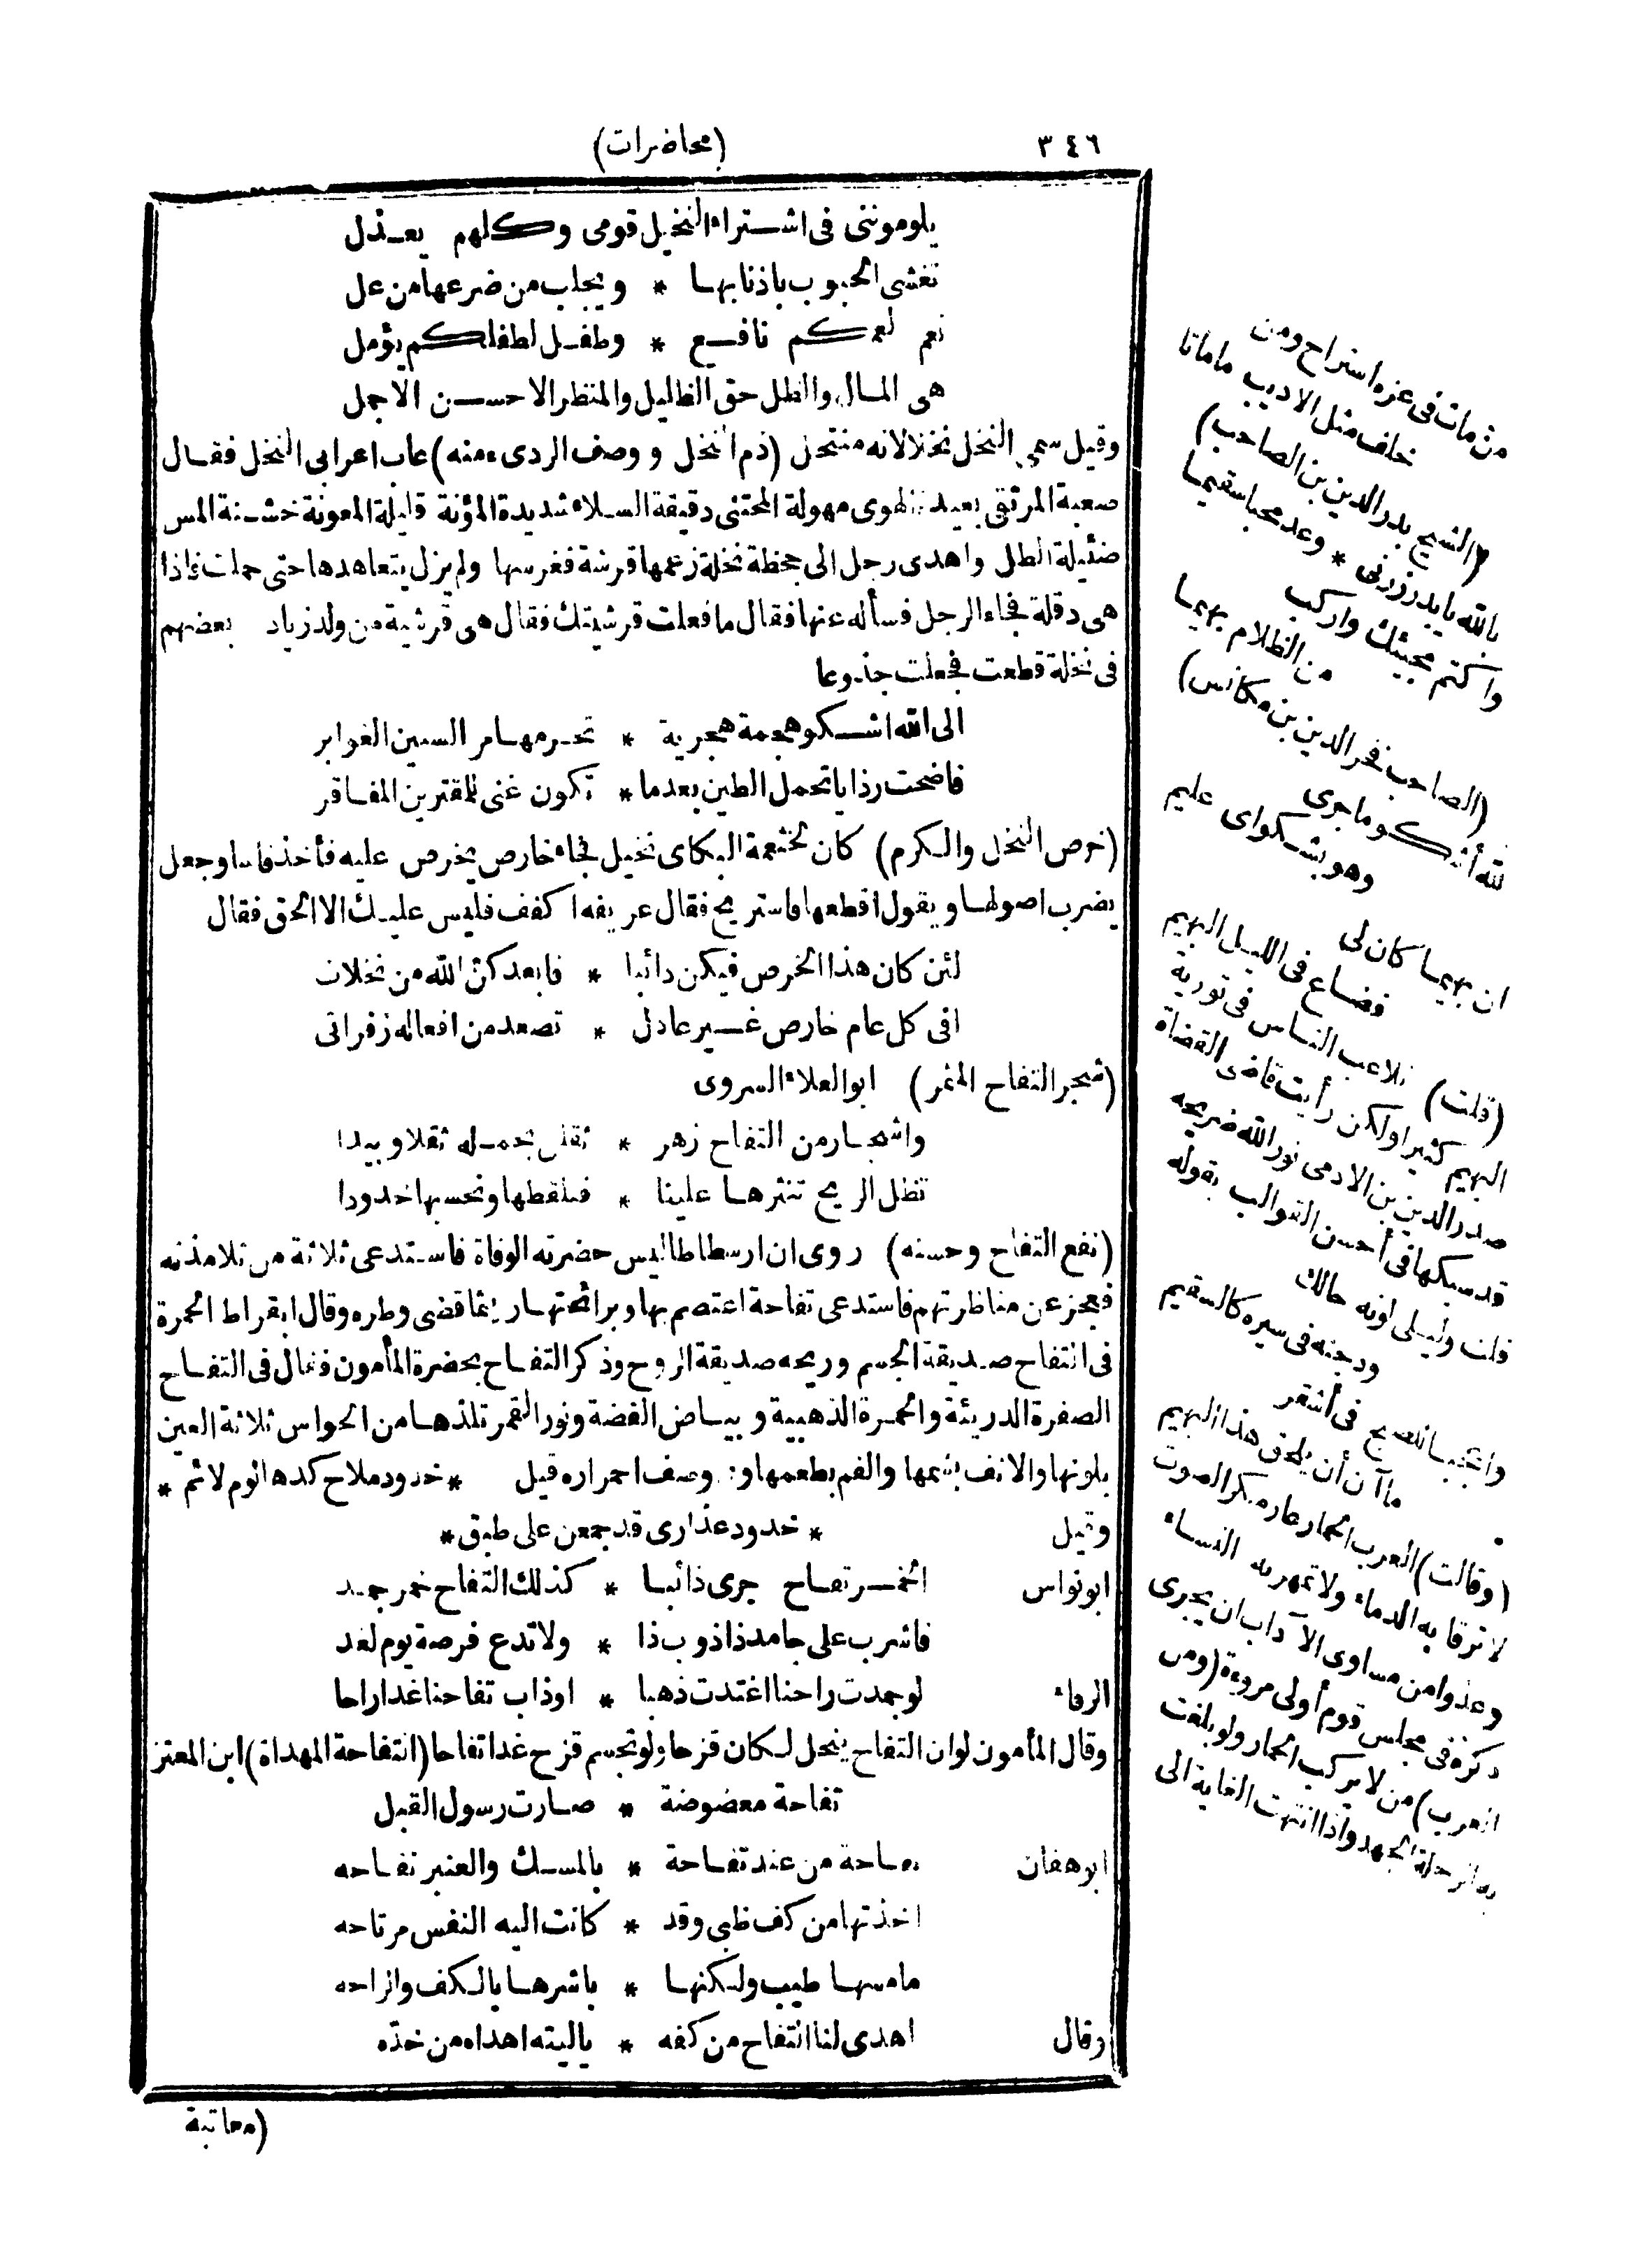 ٣٤٦
(محاضرات)
يلومونني فى اشتراء النخيل قومى وكلهم يعذل
تغشى الجبوب باذنابها * ويحلب من ضرعها من عل
نعم لعمكم نافع * وطفل لطفلكم يؤمل
هى المال والظل حق الظليل والمنظر الاحسن الاجمل
وقيل سمى النخل نخلا لانه منتحل (ذم النخل و وصف الردىء منه) عاب اعرابى النخل فقال
صعبة المرتقى بعيدة المهوى مهولة المجتنى دقيقة السلاء شديدة المؤنة قليلة المعونة خشنة المس
ضئيلة الظل واهدى رجل الى جحظة نخلة زعمها قرشة فغرسها ولم يزل يتعاهدها حتى حملت فاذا
هى دقلة فجاء الرجل فسأله عنها فقال ما فعلت قرشيتك فقال هى قرشية من ولد زياد بعضهم
فى نخلة قطعت فجعلت جذوعا
الى الله اشكو هجمة هجرية * تحرمها مر السنين الغوابر
فاضحت رذايا تحمل الطين بعدما * تكون غنى للمقترين المفاقر
(خرص النخل والكرم) كان لخثعمة البكاى نخيل فجاء خارص يخرص عليه فأخذ فاسا وجعل
يضرب اصولها ويقول اقطعها فاستريح فقال عريفه اكفف فليس عليك الا الحق فقال
لئن كان هذا الخرص فيكن دائبا * فابعدكن الله من نخلات
افى كل عام خارص غير عادل * تصعد من افعاله زفراتى
(شجر التفاح المثمر) ابو العلاء السروى
واشجار من التفاح زهر * ثقل بحمله ثقلا وبيدا
تظل الريح تنثرها علينا * فنلقطها ونحسبها خدودا
(نفع التفاح وحسنه) روى ان ارسطاطاليس حضرته الوفاة فاستدعى ثلاثة من تلامذته
فعجز عن مناظرتهم فاستدعى تفاحة اعتصم بها وبرائحتها ريثما قضى وطره وقال ابقراط الحمرة
فى التفاح صديقة الجسم وريحه صديقة الروح وذكر التفاح بحضرة المأمون فقال فى التفاح
الصفرة الدريئة والحمرة الذهبية وبياض الفضة ونور القمر تلذها من الحواس ثلاثة العين
بلونها والانف بشمها والفم بطعمها و: وصف احمراره قيل * خدود ملاح كدها لوم لائم *
وقيل * خدود عذارى قد جمعن على طبق *
ابو نواس الخمر تفاح جرى ذائبا * كذلك التفاح خمر جمد
فاشرب على جامد ذا ذوب ذا * ولا تدع فرصة يوم لغد
الرفاء لو جمدت راحنا اغتدت ذهبا * او ذاب تفاحنا غدا راحا
وقال المأمون لو ان التفاح ينحل لكان قزحا ولو تجسم قزح غدا تفاحا (التفاحة المهداة) ابن المعتز
تفاحة معضوضة * صارت رسول القبل
ابو هفان تفاحة من عند تفاحة * بالمسك والعنبر نفاحه
اخذتها من كف ظبى وقد * كانت اليه النفس مرتاحه
ما مسها طيب ولكنها * باشرها بالكف والراحه
وقال اهدى لنا التفاح من كفه * يا ليته اهداه من خده
(معاتبة
من مات فى عزه استراح ومن
خلف مثل الاديب ما ماتا
(الشيخ بدر الدين بن الصاحب)
بالله يا بدر زرنى * وعد محبا سقيما
واكتم مجيئك واركب
من الظلام بهيما
(الصاحب فخر الدين بن مكانس)
لله أشكو ما جرى
وهو بشكواى عليم
ان بهيما كان لى
فضاع فى الليل البهيم
(قلت) تلاعب الناس فى تورية
البهيم كثيرا ولكن رأيت قاضى القضاة
صدر الدين بن الادمى نور الله ضريحه
قد سبكها فى أحسن القوالب بقوله
قلت وليلى لونه حالك
ودجنه فى سيره كالسقيم
واعجبا للصبح فى أشقر
ما آن أن يلحق هذا البهيم
(وقالت) العرب الحمار عار منكر الصوت
لا ترقا به الدماء ولا تمهر به النساء
وعدوا من مساوى الآداب ان يجرى
ذكره فى مجلس قوم أولى مروءة (ومن
العرب) من لا يركب الحمار ولو بلغت
به الرحلة الجهد واذا انتهت الغاية الى